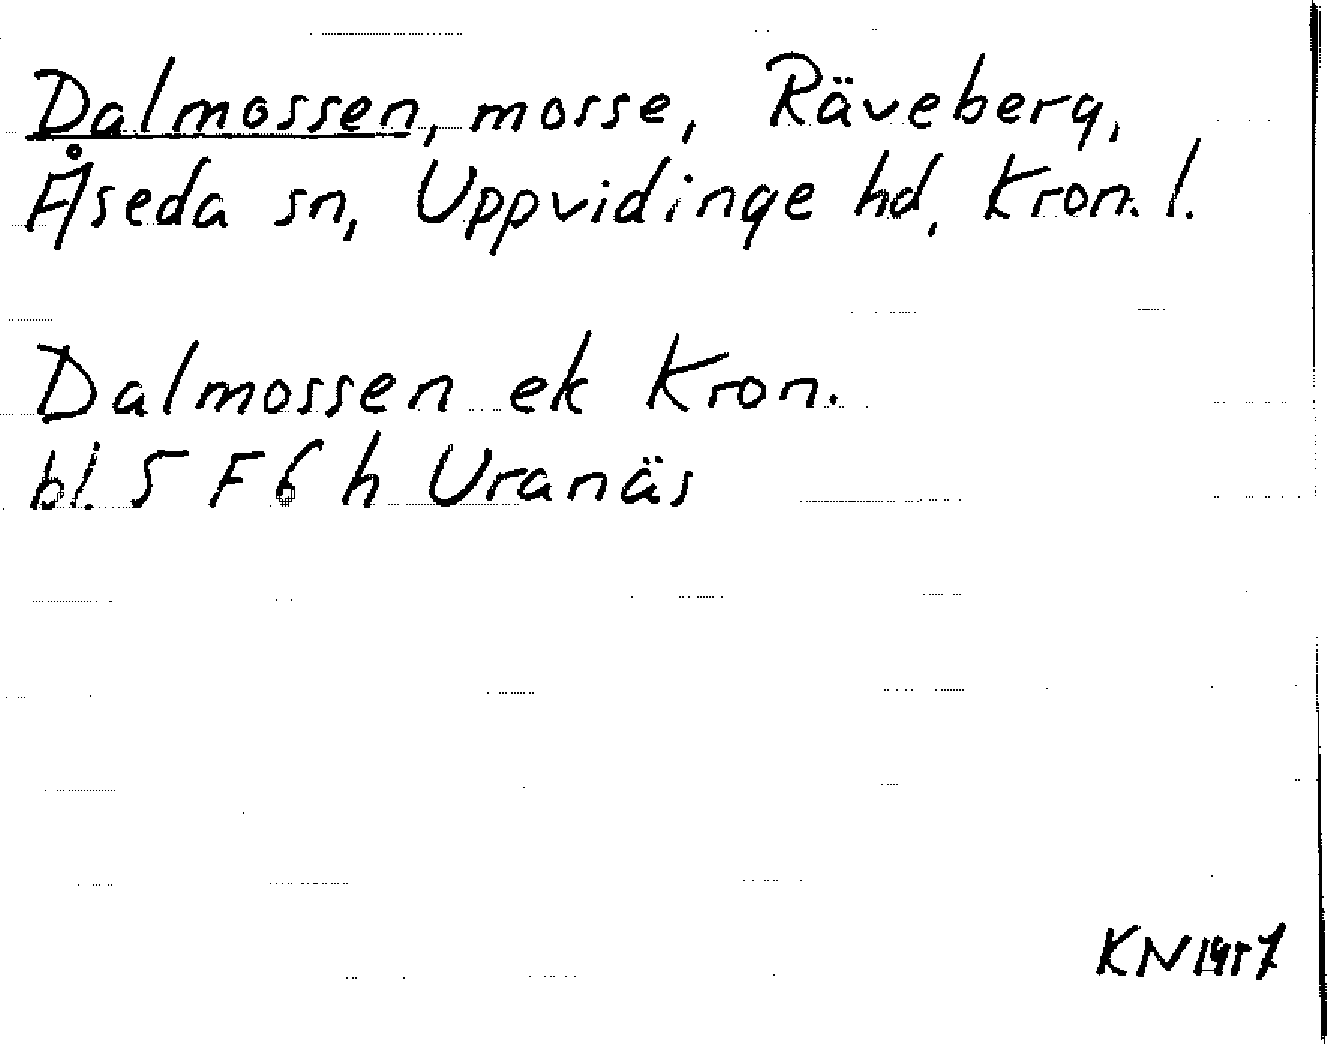 Dalmossen, mosse, Räveberg,
Åseda sn, Uppvidinge hd, Kron. l.
Dalmossen ek Kron.
bl. 5 F 6 h Uranäs
KN 1957